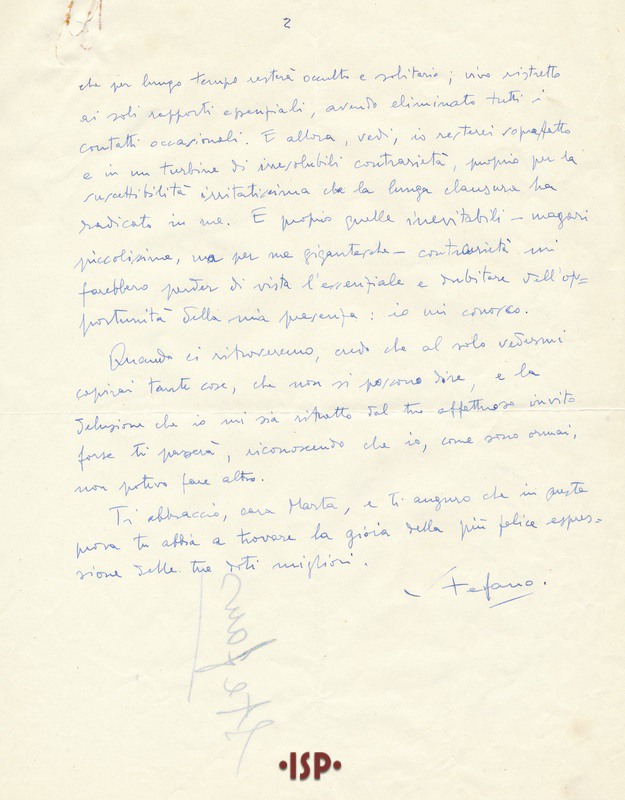 2
che per lungo tempo resterà occulto e solitario; vivo ristretto
ai soli rapporti essenziali, avendo eliminato tutti i
contatti occasionali. E allora, vedi, io resterei sopraffatto
e in un turbine di irresolubili contrarietà, proprio per la
suscettibilità irritatissima che la lunga clausura ha
radicato in me. E proprio quelle inevitabili – magari
piccolissime, ma per me gigantesche – contrarietà mi
farebbero perder di vista l'essenziale e dubitare dell'op=
portunità della mia presenza: io mi conosco.
Quando ci ritroveremo, credo che al solo vedermi
capirai tante cose, che non si possono dire, e la
delusione che io mi sia ritratto dal tuo affettuoso invito
forse ti passerà, riconoscendo che io, come sono ormai,
non potevo fare altro.
Ti abbraccio, cara Marta, e ti auguro che in questa
prova tu abbia a trovare la gioia della più felice espres=
sione delle tue doti migliori.
Stefano.
Stefano
•ISP•